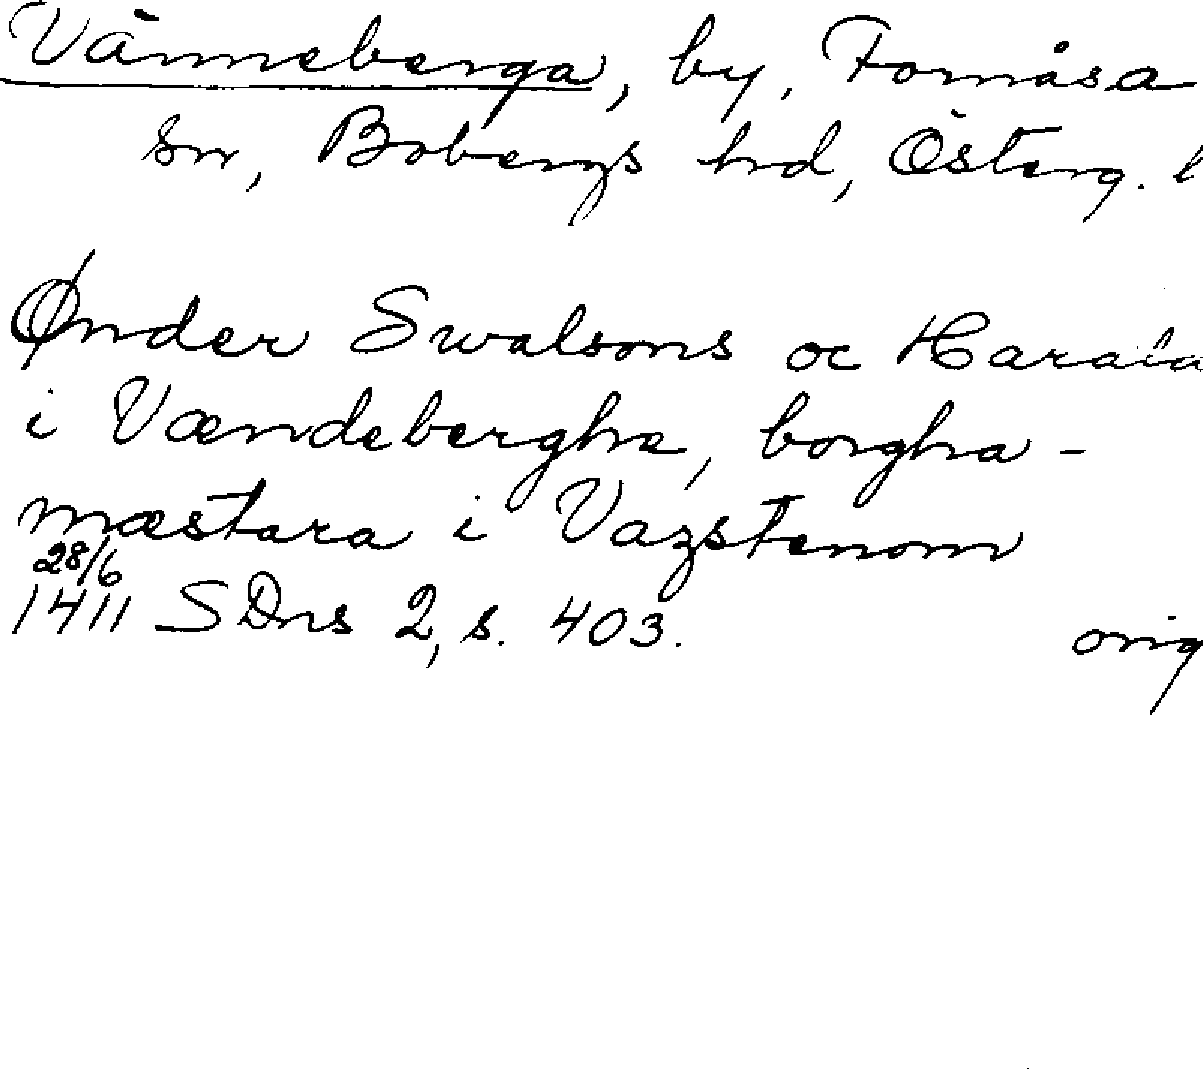 Vänneberga, by, Fornåsa
sn, Bobergs hrd, Österg. l
Ønder Swalsons oc Harala
i Vændebergha, borgha-
mæstara i Vazstenom
28/6
1411 SDns 2, s. 403. orig